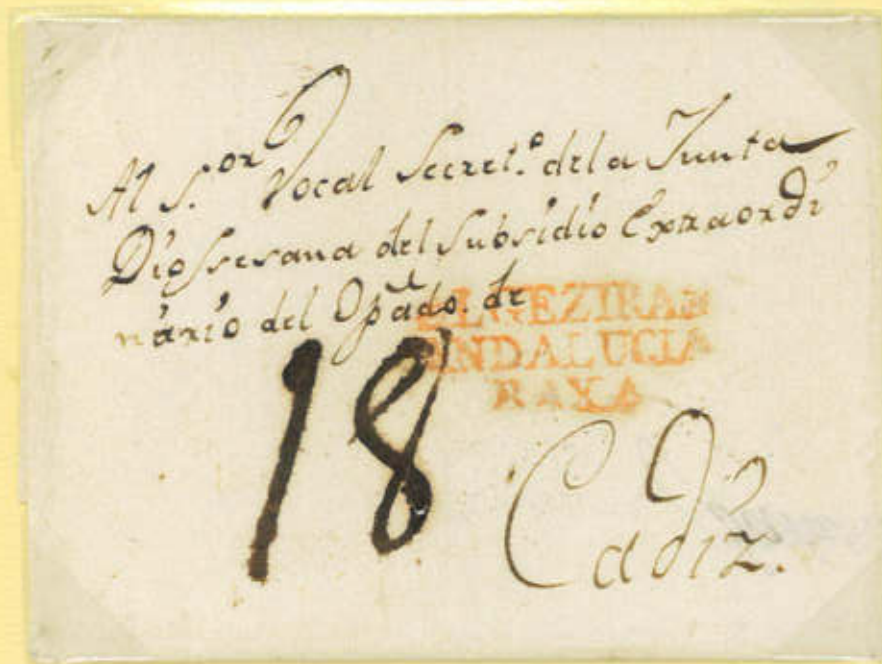 Al S.or Vocal Secret.o de la Junta
Diossesana del Subsidio Extraordi
nario del Opādo. de
ALGEZIRAS
ANDALUCIA
BAXA
18
Cadiz.